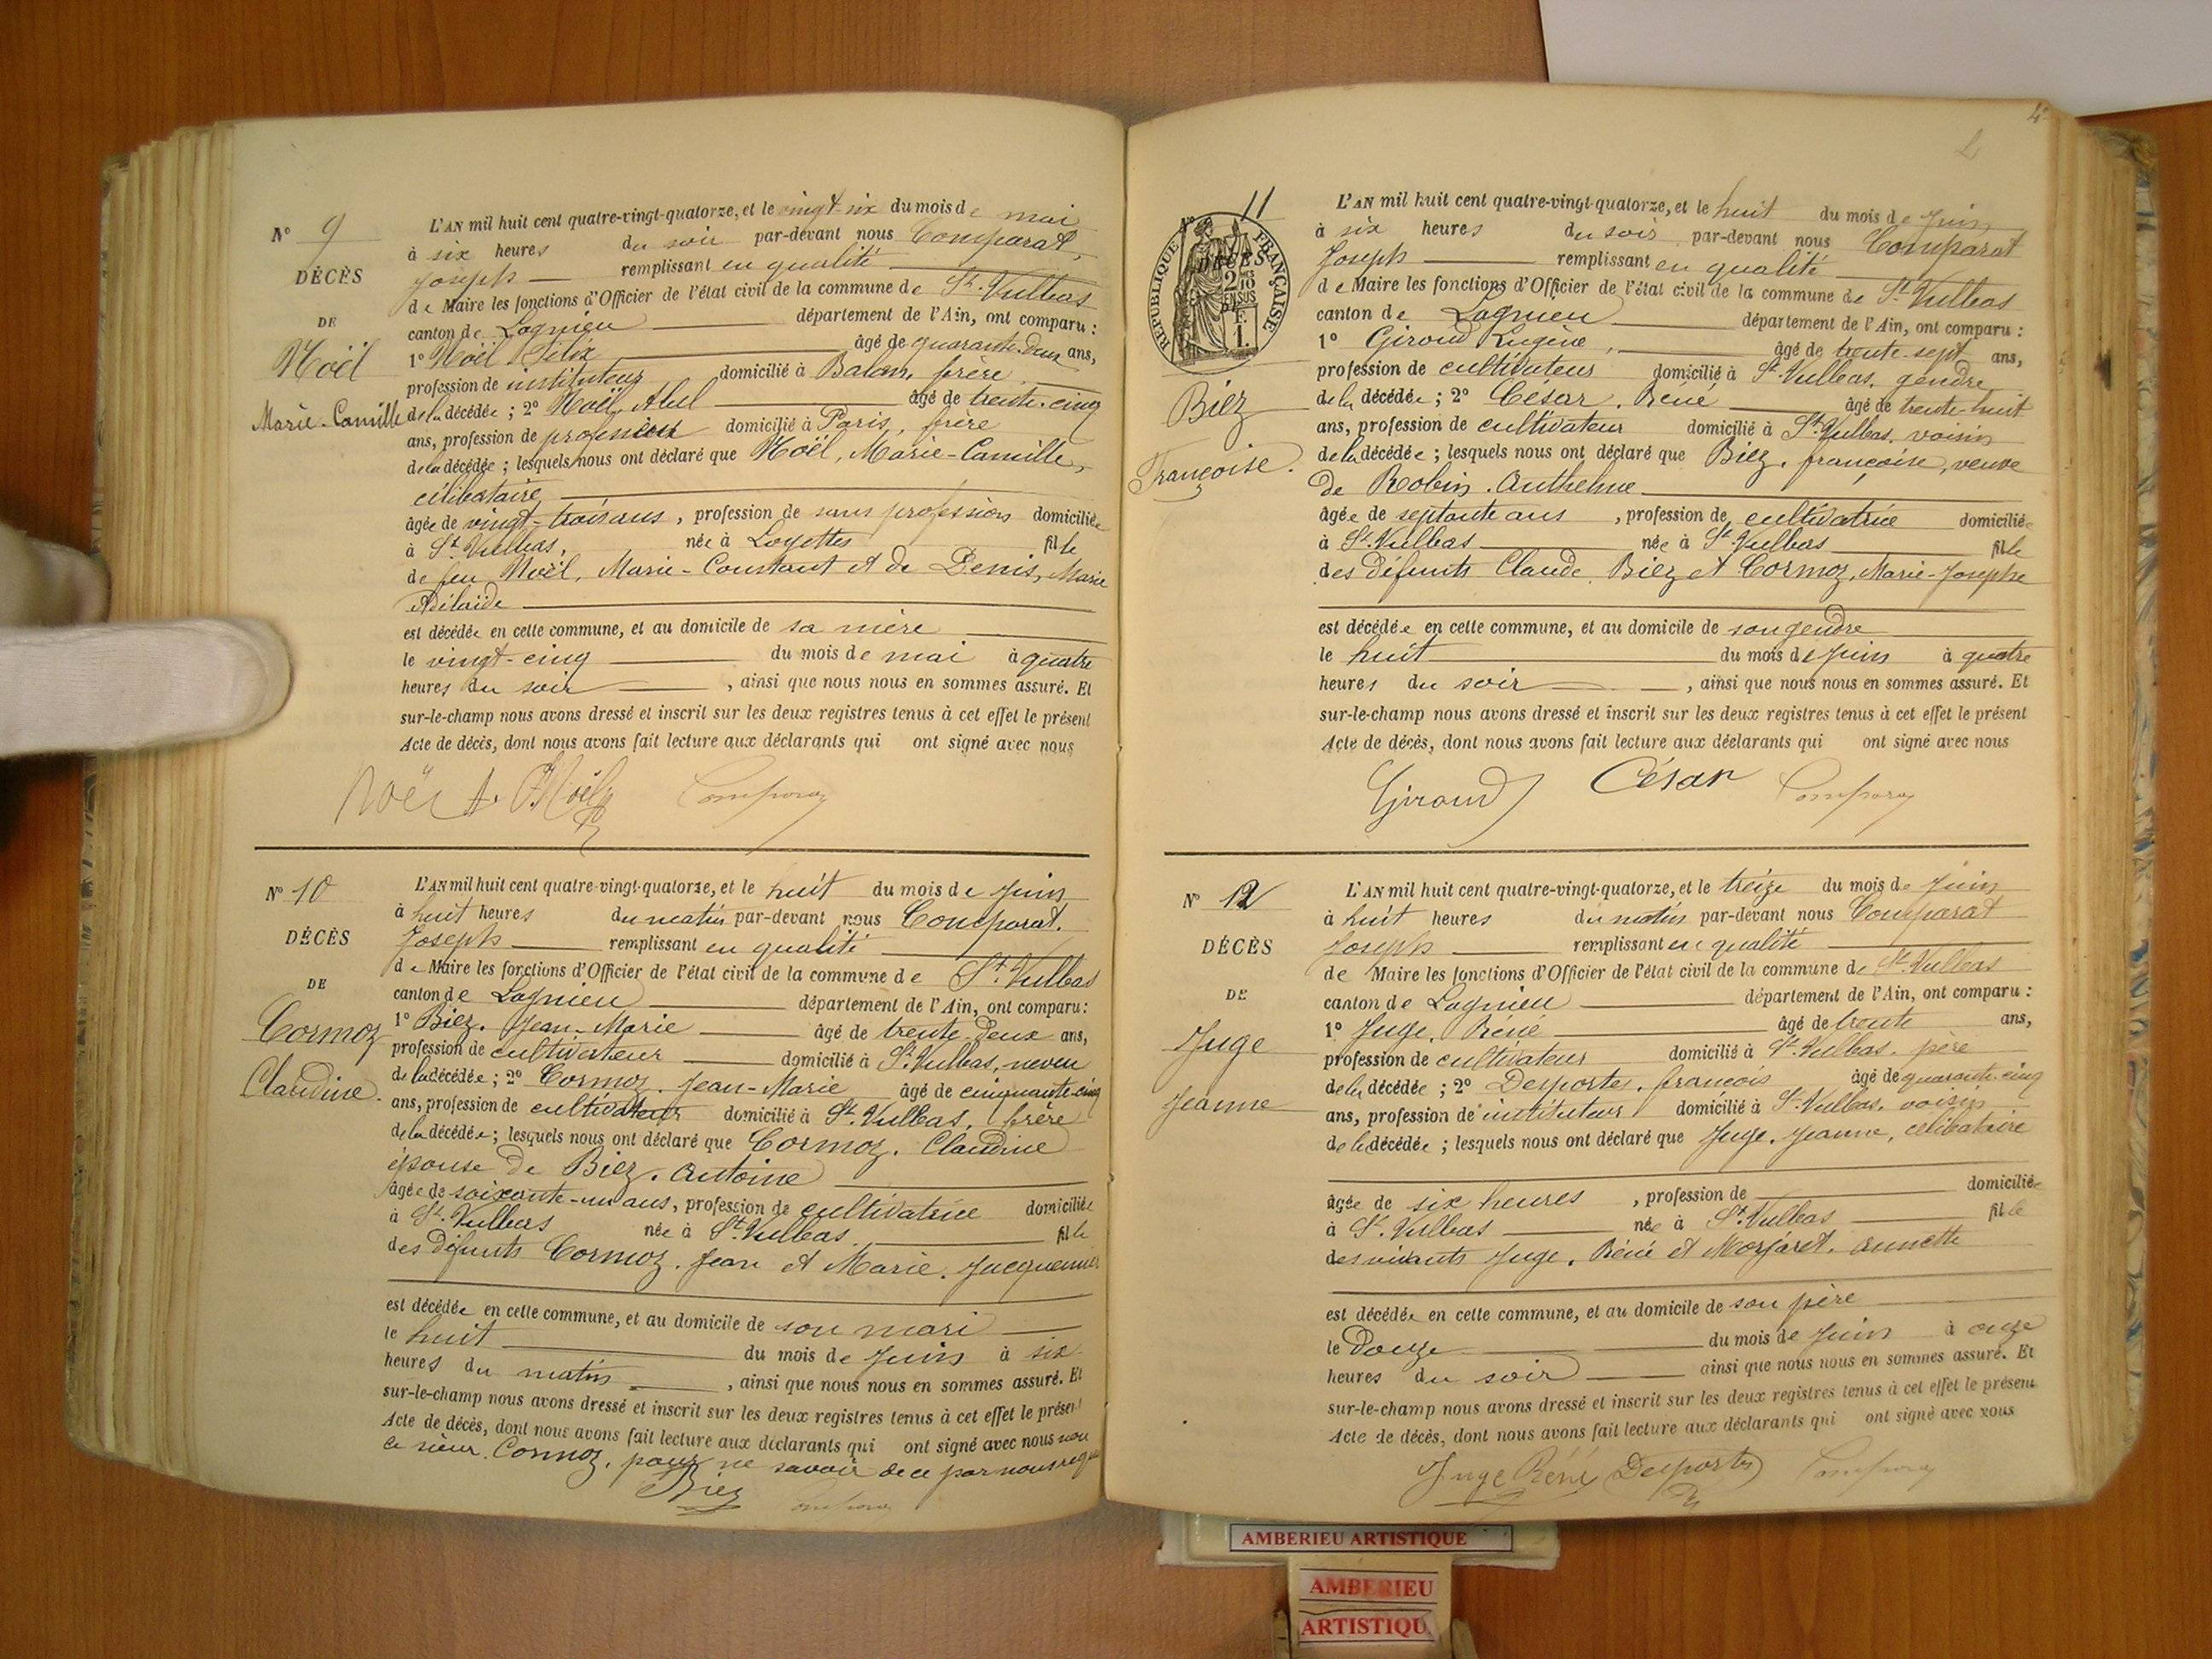 N° 9
DÉCÈS
DE
Noël
Marie-Camille
L'AN mil huit cent quatre-vingt-quatorze, et le vingt-six du mois de mai
à six heures du soir par-devant nous Comparat,
Joseph remplissant en qualité
de Maire les fonctions d'Officier de l'état civil de la commune de St. Vulbas
canton de Lagnieu département de l'Ain, ont comparu :
1° Noël Félix âgé de quarante-deux ans,
profession de instituteur domicilié à Balan, frère
de la décédée ; 2° Noël, Abel âgé de trente-cinq
ans, profession de professeur domicilié à Paris, frère
de la décédée ; lesquels nous ont déclaré que Noël, Marie-Camille,
célibataire
âgée de vingt-trois ans, profession de sans profession domiciliée
à St. Vulbas, née à Loyettes fille
de feu Noël, Marie-Constant et de Denis, Marie
Adélaïde
est décédée en cette commune, et au domicile de sa mère
le vingt-cinq du mois de mai à quatre
heures du soir, ainsi que nous nous en sommes assuré. Et
sur-le-champ nous avons dressé et inscrit sur les deux registres tenus à cet effet le présent
Acte de décès, dont nous avons fait lecture aux déclarants qui ont signé avec nous
Noël A. Noël Comparat
N° 10
DÉCÈS
DE
Cormoz
Claudine.
L'AN mil huit cent quatre-vingt-quatorze, et le huit du mois de Juin
à huit heures du matin par-devant nous Comparat.
Joseph remplissant en qualité
de Maire les fonctions d'Officier de l'état civil de la commune de St. Vulbas
canton de Lagnieu département de l'Ain, ont comparu :
1° Biez. Jean-Marie âgé de trente-deux ans,
profession de cultivateur domicilié à St. Vulbas, neveu
de la décédée ; 2° Cormoz. Jean-Marie âgé de cinquante-cinq
ans, profession de cultivateur domicilié à St. Vulbas, frère
de la décédée ; lesquels nous ont déclaré que Cormoz. Claudine
épouse de Biez. Antoine
âgée de soixante-un ans, profession de cultivatrice domiciliée
à St. Vulbas née à St. Vulbas fille
des défunts Cormoz. Jean et Marie. Jacquemier
est décédée en cette commune, et au domicile de son mari
le huit du mois de Juin à six
heures du matin, ainsi que nous nous en sommes assuré. Et
sur-le-champ nous avons dressé et inscrit sur les deux registres tenus à cet effet le présent
Acte de décès, dont nous avons fait lecture aux déclarants qui ont signé avec nous non
le sieur. Cormoz, pour ne savoir de ce par nous requis
Biez Comparat
4
11
RÉPUBLIQUE FRANÇAISE
DÉCÈS
2/10 EN SUS
F. 1.
Biez
Françoise.
L'AN mil huit cent quatre-vingt-quatorze, et le huit du mois de Juin
à six heures du soir par-devant nous Comparat
Joseph remplissant en qualité
de Maire les fonctions d'Officier de l'état civil de la commune de St. Vulbas
canton de Lagnieu département de l'Ain, ont comparu :
1° Giroud Eugène, âgé de trente-sept ans,
profession de cultivateur domicilié à St. Vulbas, gendre
de la décédée ; 2° César. Réné âgé de trente-huit
ans, profession de cultivateur domicilié à St. Vulbas, voisin
de la décédée ; lesquels nous ont déclaré que Biez. françoise, veuve
de Robin. Anthelme
âgée de septante ans, profession de cultivatrice domiciliée
à St. Vulbas née à St. Vulbas fille
des défunts Claude Biez et Cormoz, Marie-Josephe
est décédée en cette commune, et au domicile de son gendre
le huit du mois de Juin à quatre
heures du soir, ainsi que nous nous en sommes assuré. Et
sur-le-champ nous avons dressé et inscrit sur les deux registres tenus à cet effet le présent
Acte de décès, dont nous avons fait lecture aux déclarants qui ont signé avec nous
Giroud César Comparat
N° 12
DÉCÈS
DE
Juge
Jeanne
L'AN mil huit cent quatre-vingt-quatorze, et le treize du mois de Juin
à huit heures du matin par-devant nous Comparat
Joseph remplissant en qualité
de Maire les fonctions d'Officier de l'état civil de la commune de St. Vulbas
canton de Lagnieu département de l'Ain, ont comparu :
1° Juge. Réné âgé de trente ans,
profession de cultivateur domicilié à St. Vulbas. père
de la décédée ; 2° Desportes. françois âgé de quarante-cinq
ans, profession de instituteur domicilié à St. Vulbas. voisin
de la décédée ; lesquels nous ont déclaré que Juge. Jeanne, célibataire
âgée de six heures, profession de domiciliée
à St. Vulbas née à St. Vulbas fille
des vivants Juge. Réné et Morjaret. Annette
est décédée en cette commune, et au domicile de son père
le Douze du mois de Juin à onze
heures du soir ainsi que nous nous en sommes assuré. Et
sur-le-champ nous avons dressé et inscrit sur les deux registres tenus à cet effet le présent
Acte de décès, dont nous avons fait lecture aux déclarants qui ont signé avec nous
Juge Réné Desportes Comparat
AMBERIEU ARTISTIQUE
AMBERIEU
ARTISTIQU